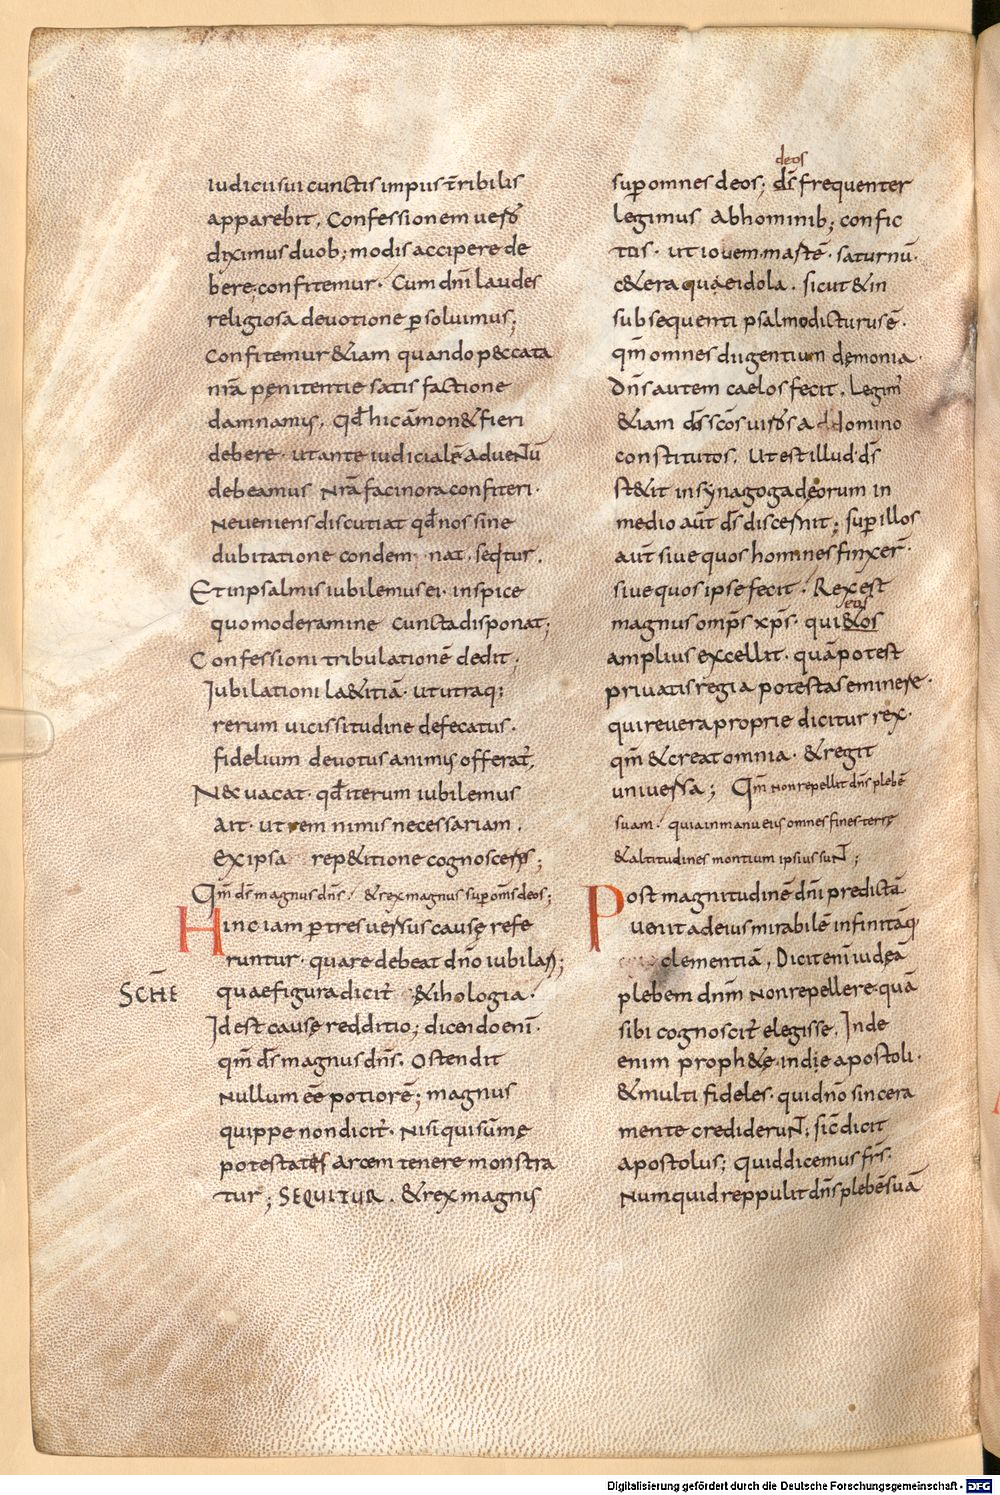 iudicii sui cunctis impiis tēribilis
apparebit. Confessionem uero
diximus duob; modis accipere de
bere. confitemur. Cum dn̄i laudes
religiosa deuotione ꝑsoluimus;
Confitemur &iam quando peccata
nr̄a penitentie satisfactione
damnamus. Qd̄ hic ām̄on& fieri
debere. ut ante iudicialē aduentū
debeamus nr̄a facinora confiteri.
Neueniens discutiat qd̄ nos sine
dubitatione condem nat. seqtur.
Et in psalmis iubilemus ei. inspice
quo moderamine cuncta disponat;
Confessioni tribulationē dedit;
Iubilationi la&itiā. ut utraq;
rerum uicissitudine defecatus.
fidelium deuotus animus offerat̄.
N& uacat. qd̄ iterum iubilemus
ait. ut rem nimis necessariam.
ex ipsa rep&itione cognosceres;
Qm̄ ds̄ magnus dn̄s. & rex magnus suꝑ om̄s deos;
Hinc iam ꝑ tres uersus causę refe
runtur. quare debeat dn̄o iubilari;
SCHE
quae figura dicit̄ &ihologia.
Id est causę redditio; dicendo enī.
qm̄ ds̄ magnus dn̄s. Ostendit
nullum eē potiorē; magnus
quippe non dicit̄. nisi qui sūmę
potestates arcem tenere monstra
tur; SEQUITUR. & rex magnus
deos
suꝑ omnes deos; ds̄ frequenter
legimus ab hominib; confic
tos. ut iouem. martē. saturnū.
c&era quae idola. sicut & in
subsequenti psalmo dicturus ē.
qm̄ omnes dii gentium demonia.
Dn̄s autem caelos fecit. Legim̄
&iam ds̄ scōs uiros a domino
constitutos. Ut est illud. ds̄
st&it in synagoga deorum in
medio aūt ds̄ discernit; suꝑ illos
aūt siue quos homines finxer̄.
siue quos ipse fecit. Rex est
eos
magnus omp̄s xp̄s. qui &os
amplius excellit. quā potest
priuatis regia potestas eminere.
qui reuera proprie dicitur rex.
qm̄ & creat omnia. & regit
uniuersa; Qm̄ non repellit dn̄s plebē
suam. quia in manu eius omnes fines terrę
& altitudines montium ipsius sunt;
Post magnitudinē dn̄i predictā
uenit ad eius mirabilē infinitāq
clementiā. Dicit enī iudeā
plebem dn̄m non repellere. quā
sibi cognoscit̄ elegisse. Inde
enim proph&ę. indie apostoli.
& multi fideles. qui dn̄o sincera
mente crediderunt; sic̄ dicit
apostolus; Quid dicemus fr̄s.
Numquid reppulit dn̄s plebē suā
Digitalisierung gefördert durch die Deutsche Forschungsgemeinschaft - DFG